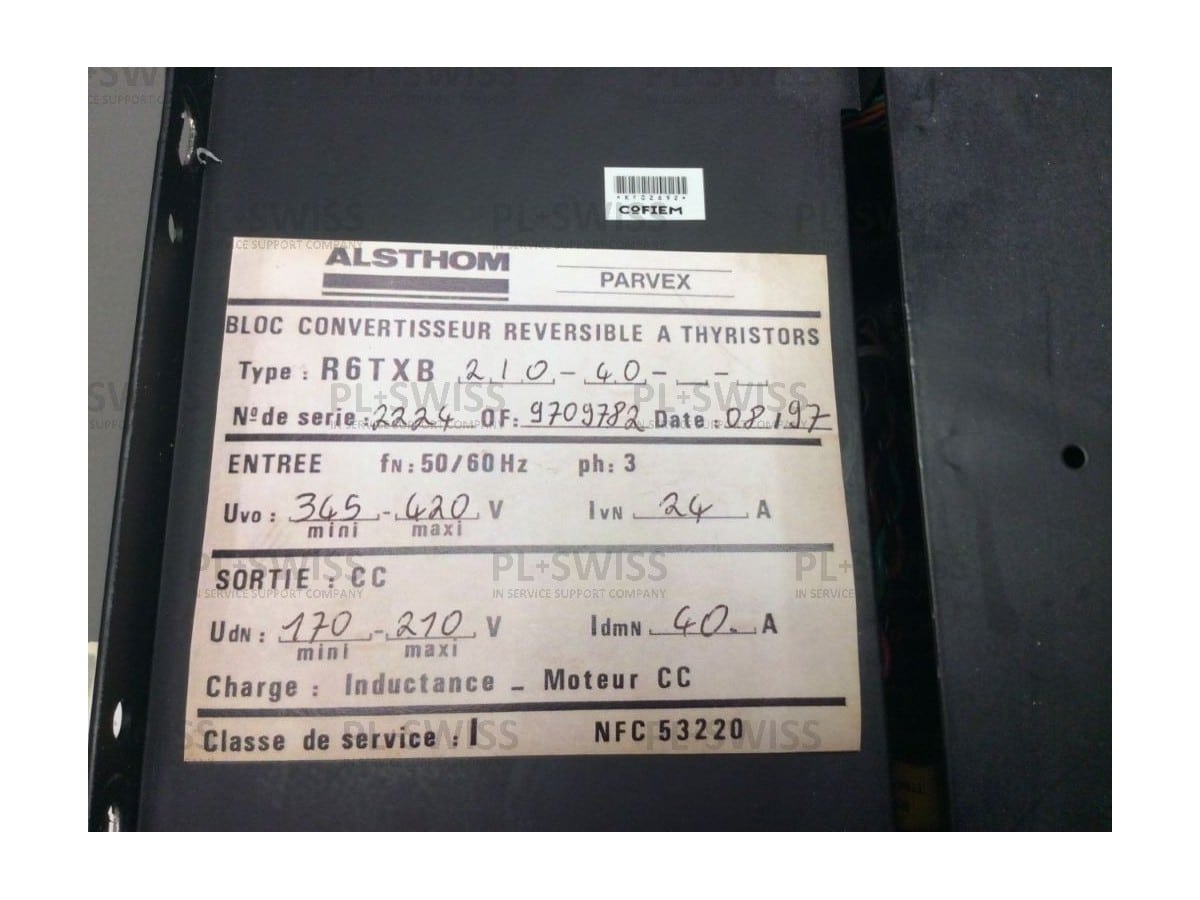 *KF02892*
COFIEM
ALSTHOM
PARVEX
BLOC CONVERTISSEUR REVERSIBLE A THYRISTORS
Type : R6TXB 210 - 40 - _ - _
Nº de serie : 2224 OF: 9709782 Date : 08,97
ENTREE fN : 50/60 Hz ph : 3
Uvo : 345 - 420 V IvN 24 A
mini maxi
SORTIE : CC
UdN : 170 - 210 V IdmN 40. A
mini maxi
Charge : Inductance _ Moteur CC
Classe de service : I NFC 53220
PL+SWISS
IN SERVICE SUPPORT COMPANY